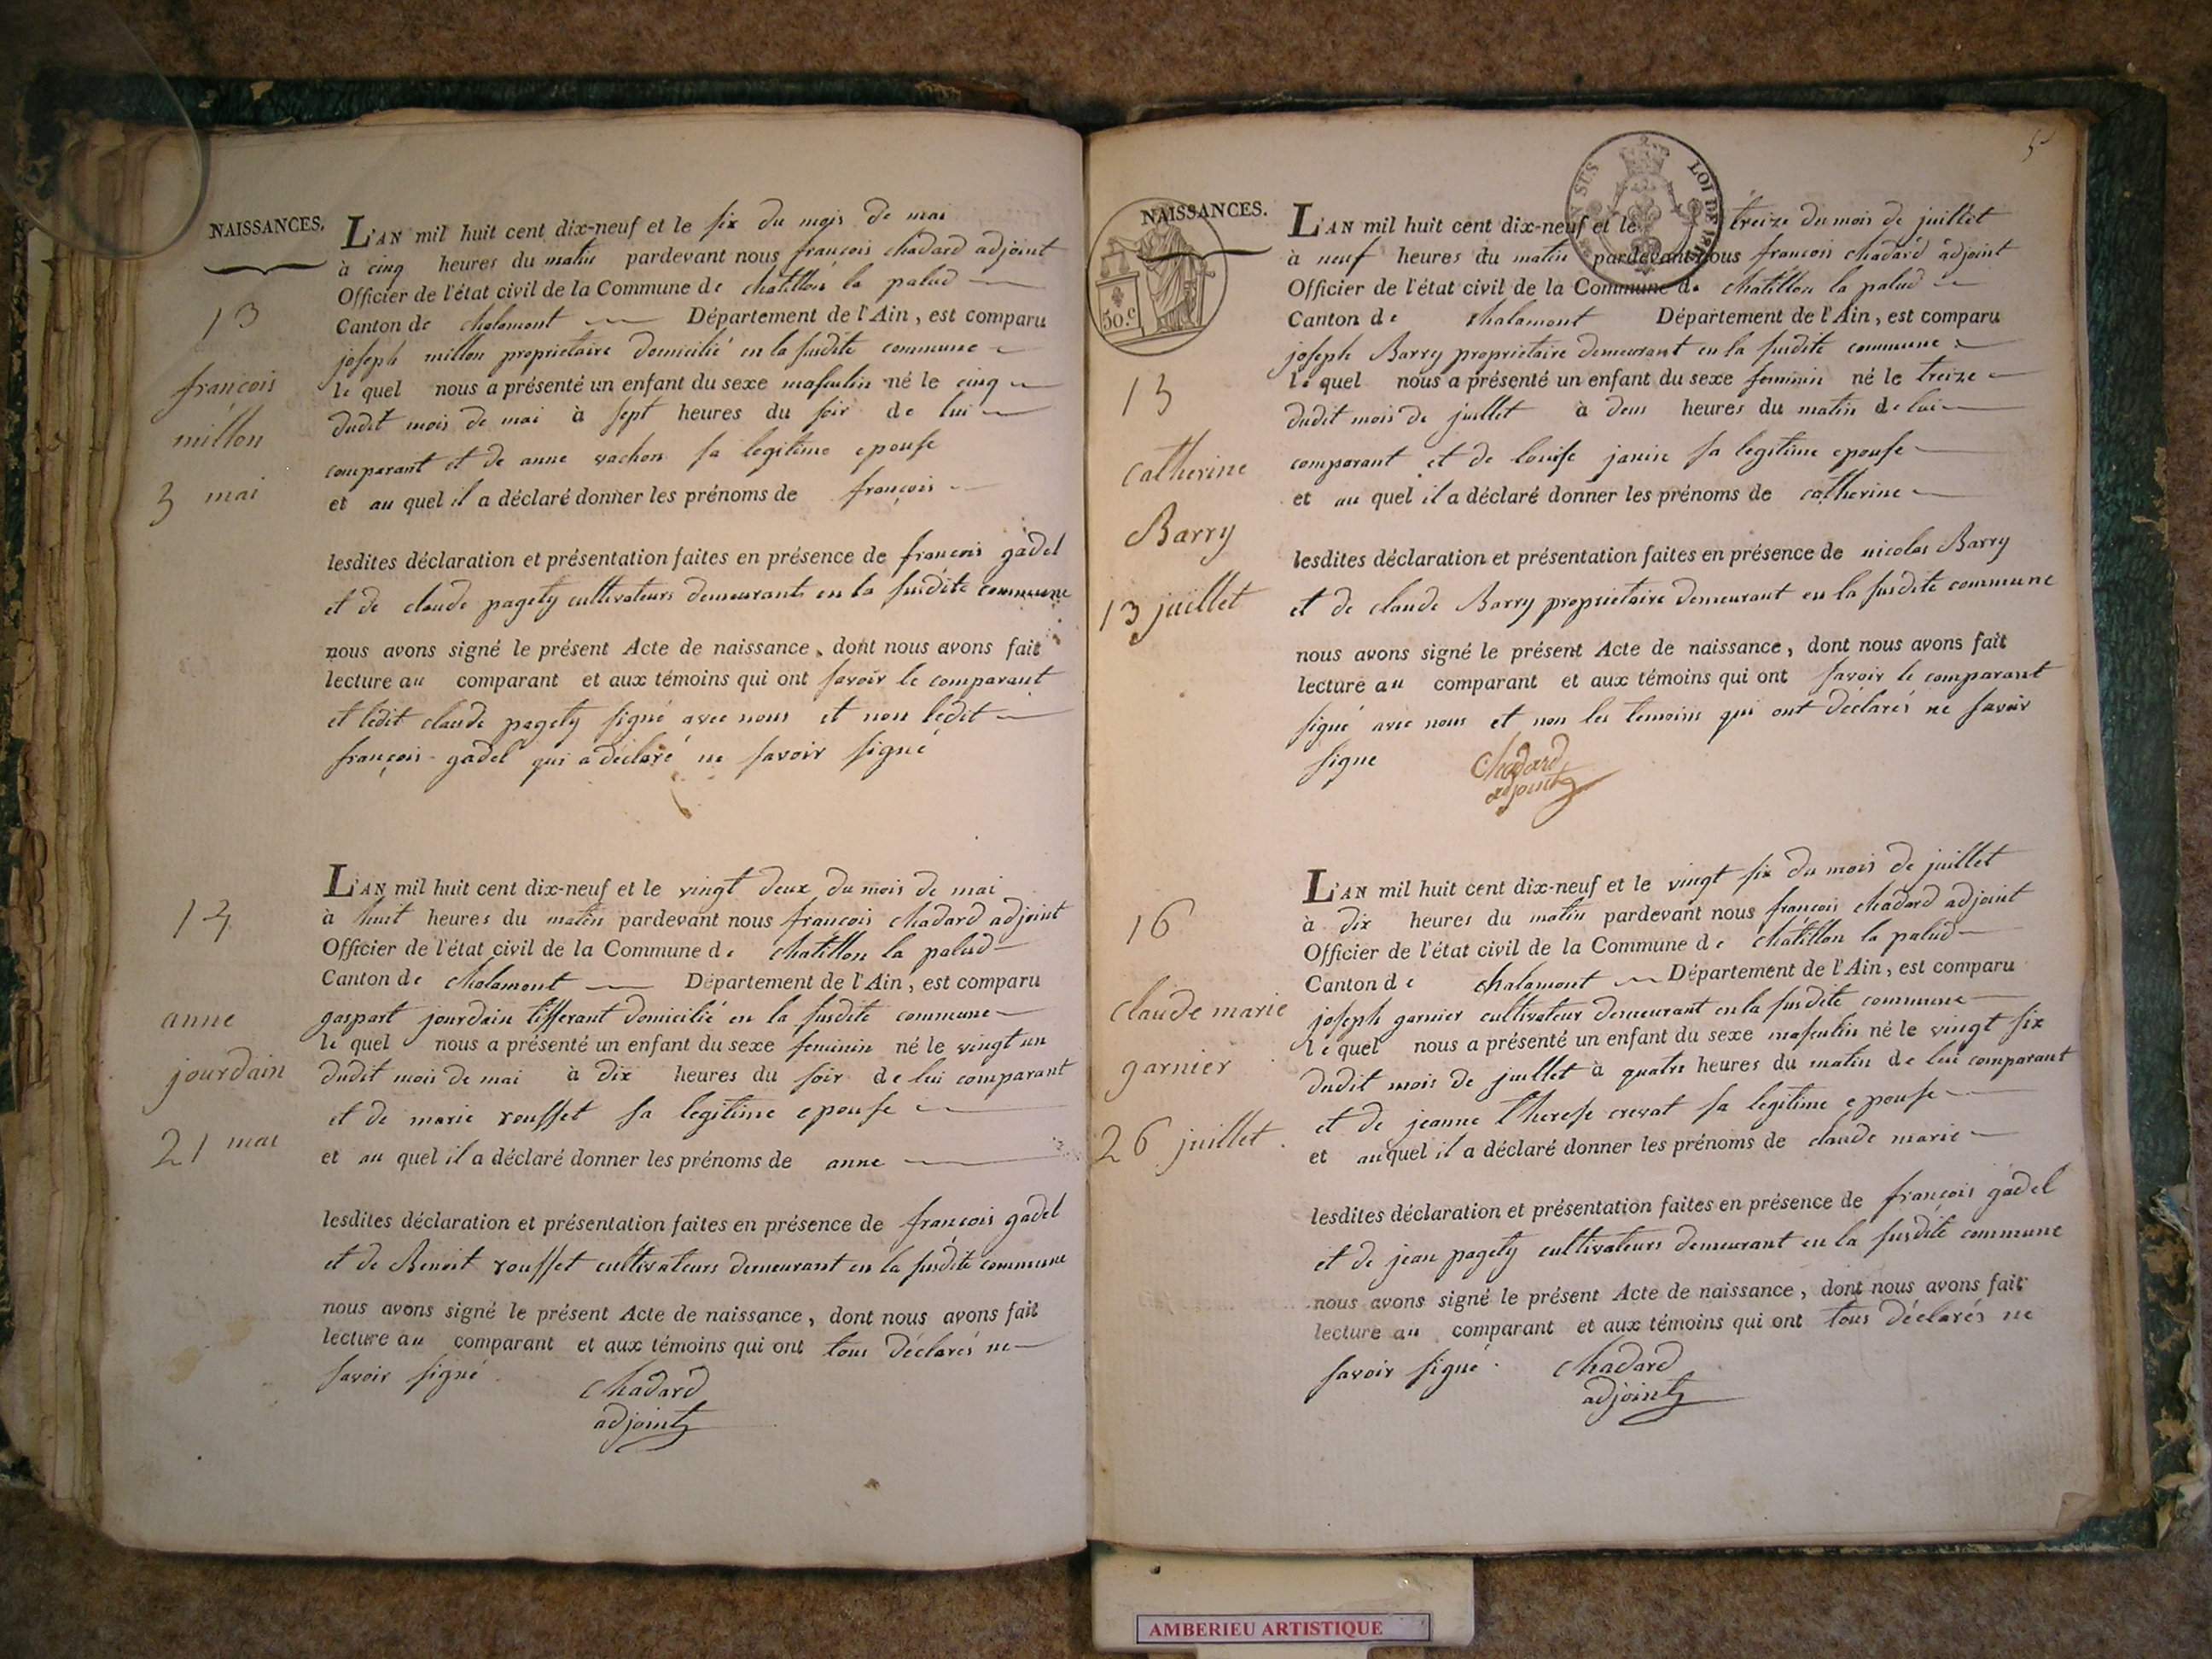 NAISSANCES.
13
françois
millon
5 mai
L'AN mil huit cent dix-neuf et le six du mois de mai
à cinq heures du matin pardevant nous françois chadard adjoint
Officier de l'état civil de la Commune de chatillon la palud
Canton de chalamont Département de l'Ain, est comparu
joseph millon proprietaire domicilié en la susdite commune
le quel nous a présenté un enfant du sexe masculin né le cinq
dudit mois de mai à sept heures du soir de lui
comparant et de anne vachon sa legitime epouse
et au quel il a déclaré donner les prénoms de françois
lesdites déclaration et présentation faites en présence de françois gadel
et de claude pagety cultivateurs demeurants en la susdite commune
nous avons signé le présent Acte de naissance, dont nous avons fait
lecture au comparant et aux témoins qui ont savoir le comparant
et ledit claude pagety signé avec nous et non ledit
françois gadel qui a déclaré ne savoir signé
14
anne
jourdain
21 mai
L'AN mil huit cent dix-neuf et le vingt deux du mois de mai
à huit heures du matin pardevant nous françois chadard adjoint
Officier de l'état civil de la Commune de chatillon la palud
Canton de chalamont Département de l'Ain, est comparu
gaspart jourdain tisserant domicilié en la susdite commune
le quel nous a présenté un enfant du sexe feminin né le vingt un
dudit mois de mai à dix heures du soir de lui comparant
et de marie rousset sa legitime epouse
et au quel il a déclaré donner les prénoms de anne
lesdites déclaration et présentation faites en présence de françois gadel
et de Benoit rousset cultivateurs demeurant en la susdite commune
nous avons signé le présent Acte de naissance, dont nous avons fait
lecture au comparant et aux témoins qui ont tous déclarés ne
savoir signé
chadard
adjoint
5
SUS LOI DE
50.c
NAISSANCES.
15
catherine
Barry
13 juillet
L'AN mil huit cent dix-neuf et le treize du mois de juillet
à neuf heures du matin pardevant nous francois chadard adjoint
Officier de l'état civil de la Commune de chatillon la palud
Canton de chalamont Département de l'Ain, est comparu
joseph Barry proprietaire demeurant en la susdite commune
le quel nous a présenté un enfant du sexe feminin né le treize
dudit mois de juillet à deux heures du matin de lui
comparant et de louise janin sa legitime epouse
et au quel il a déclaré donner les prénoms de catherine
lesdites déclaration et présentation faites en présence de nicolas Barry
et de claude Barry proprietaire demeurant en la susdite commune
nous avons signé le présent Acte de naissance, dont nous avons fait
lecture au comparant et aux témoins qui ont savoir le comparant
signé avec nous et non les temoins qui ont déclarés ne savoir
signe
Chadard
adjoint
16
claude marie
garnier
26 juillet.
L'AN mil huit cent dix-neuf et le vingt six du mois de juillet
à dix heures du matin pardevant nous françois chadard adjoint
Officier de l'état civil de la Commune de chatillon la palud
Canton de chalamont Département de l'Ain, est comparu
joseph garnier cultivateur demeurant en la susdite commune
le quel nous a présenté un enfant du sexe masculin né le vingt six
dudit mois de juillet à quatre heures du matin de lui comparant
et de jeanne therese crevat sa legitime epouse
et au quel il a déclaré donner les prénoms de claude marie
lesdites déclaration et présentation faites en présence de françois gadel
et de jean pagety cultivateurs demeurant en la susdite commune
nous avons signé le présent Acte de naissance, dont nous avons fait
lecture au comparant et aux témoins qui ont tous déclarés ne
savoir signé.
chadard
adjoint
AMBERIEU ARTISTIQUE